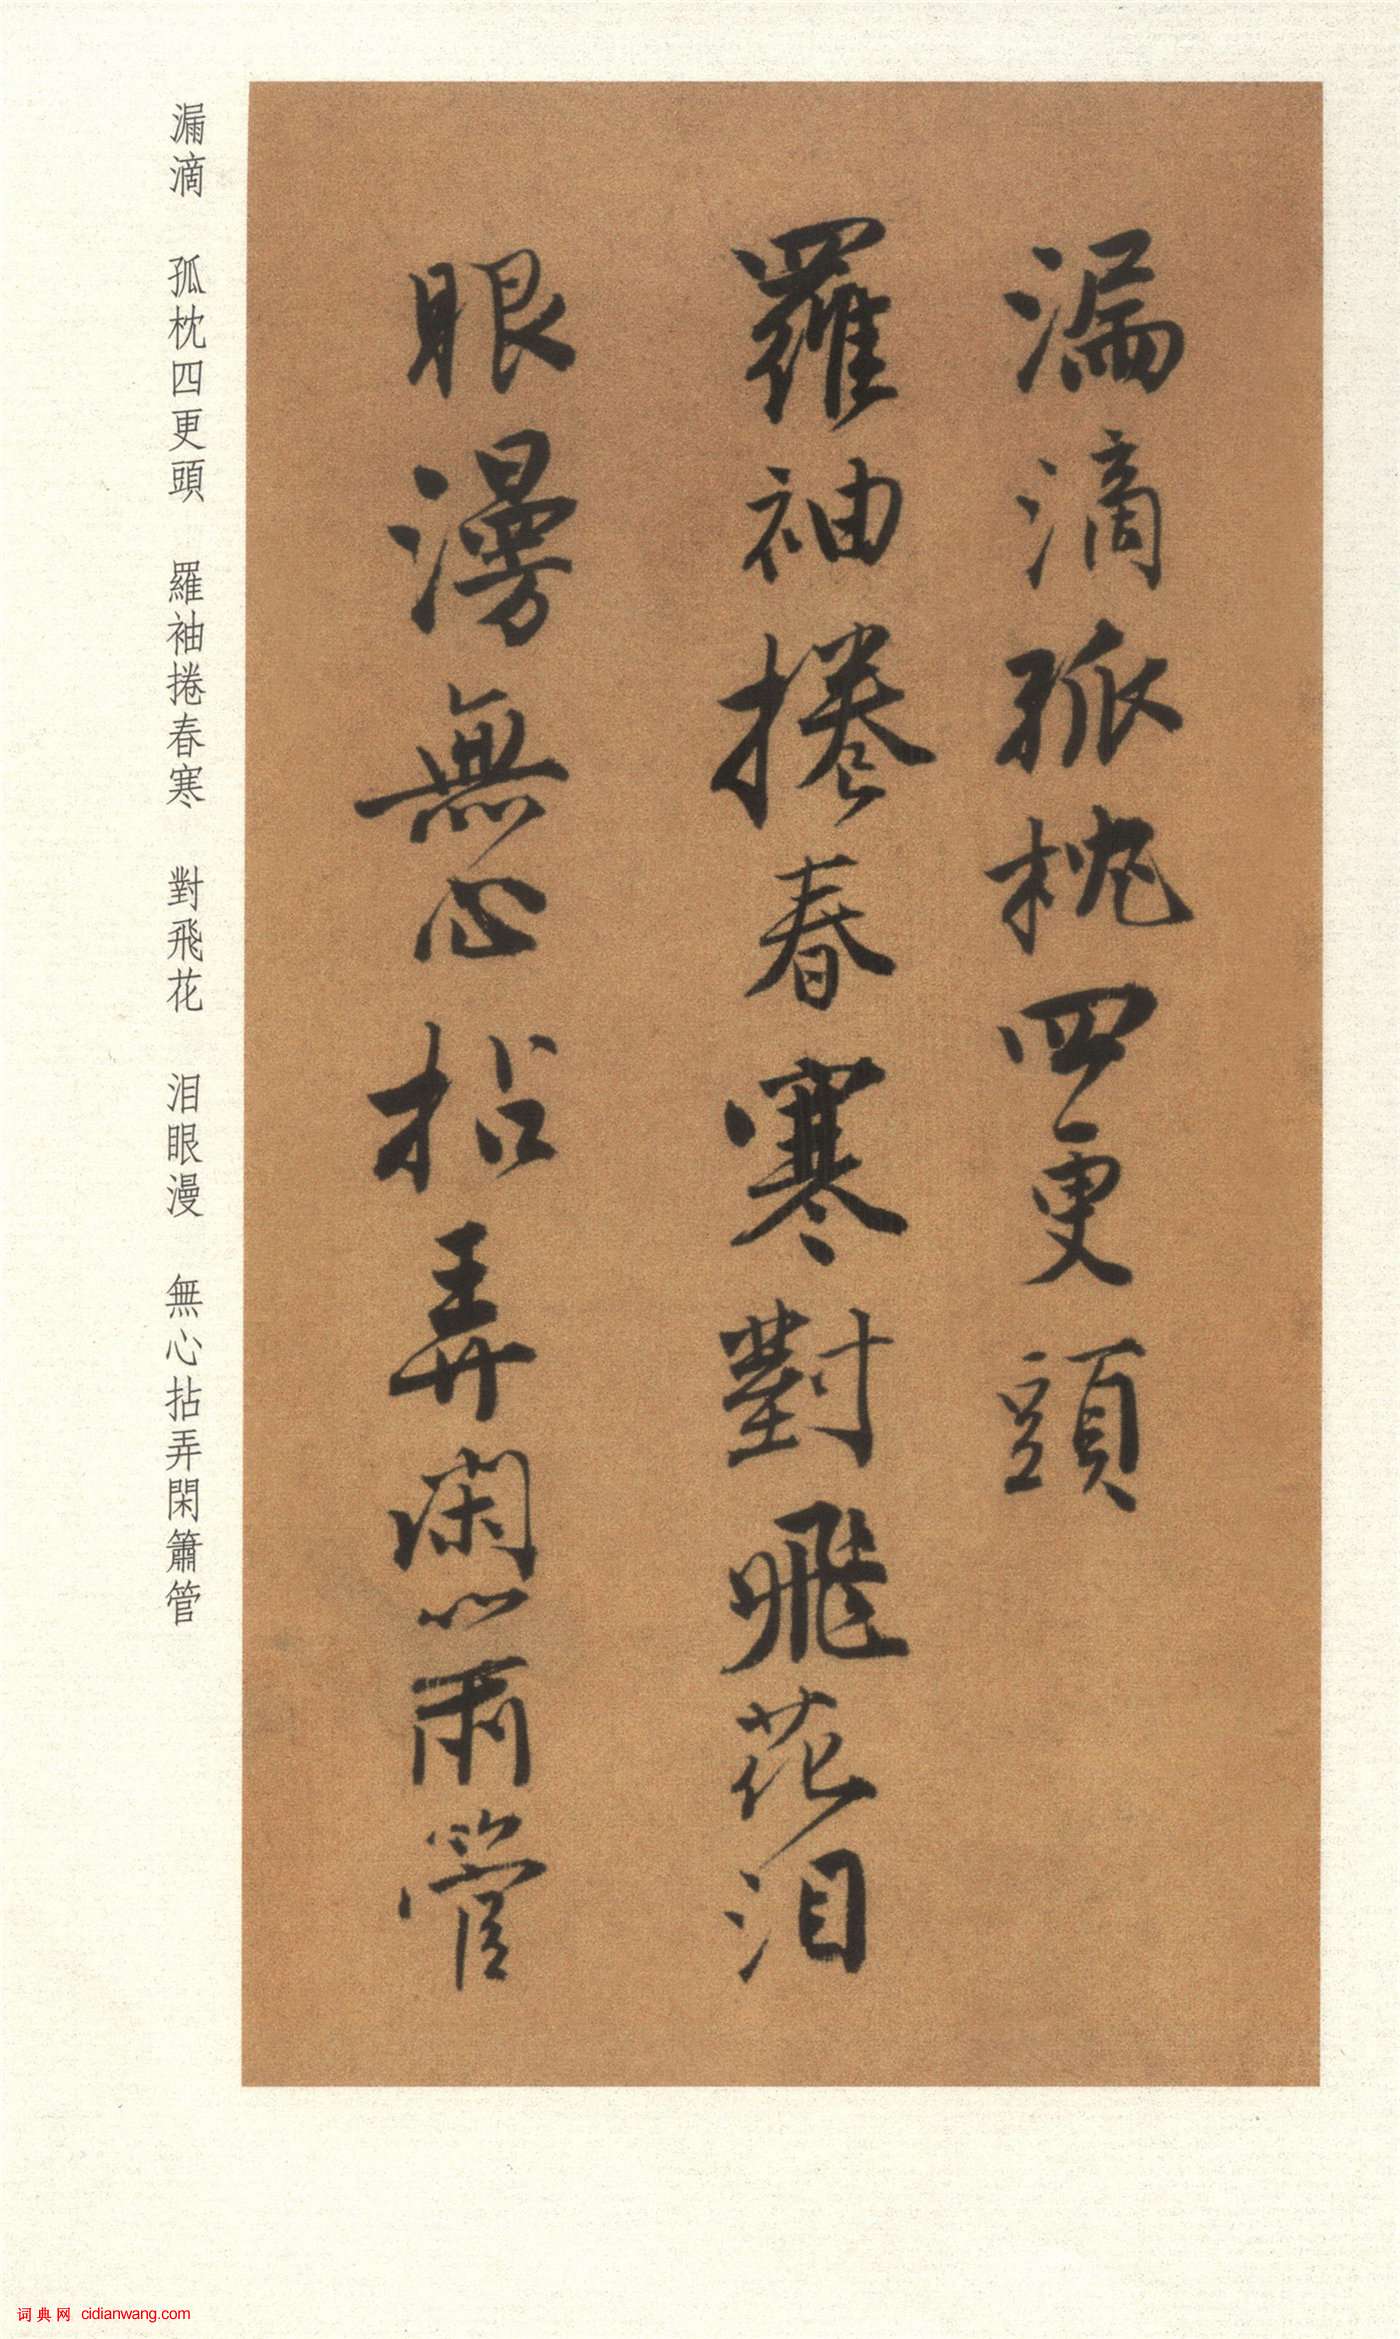 漏滴孤枕四更頭
羅袖捲春寒對飛花泪
眼漫無心拈弄閑簫管
漏滴 孤枕四更頭 羅袖捲春寒 對飛花 泪眼漫 無心拈弄閑簫管
词典网 cidianwang.com